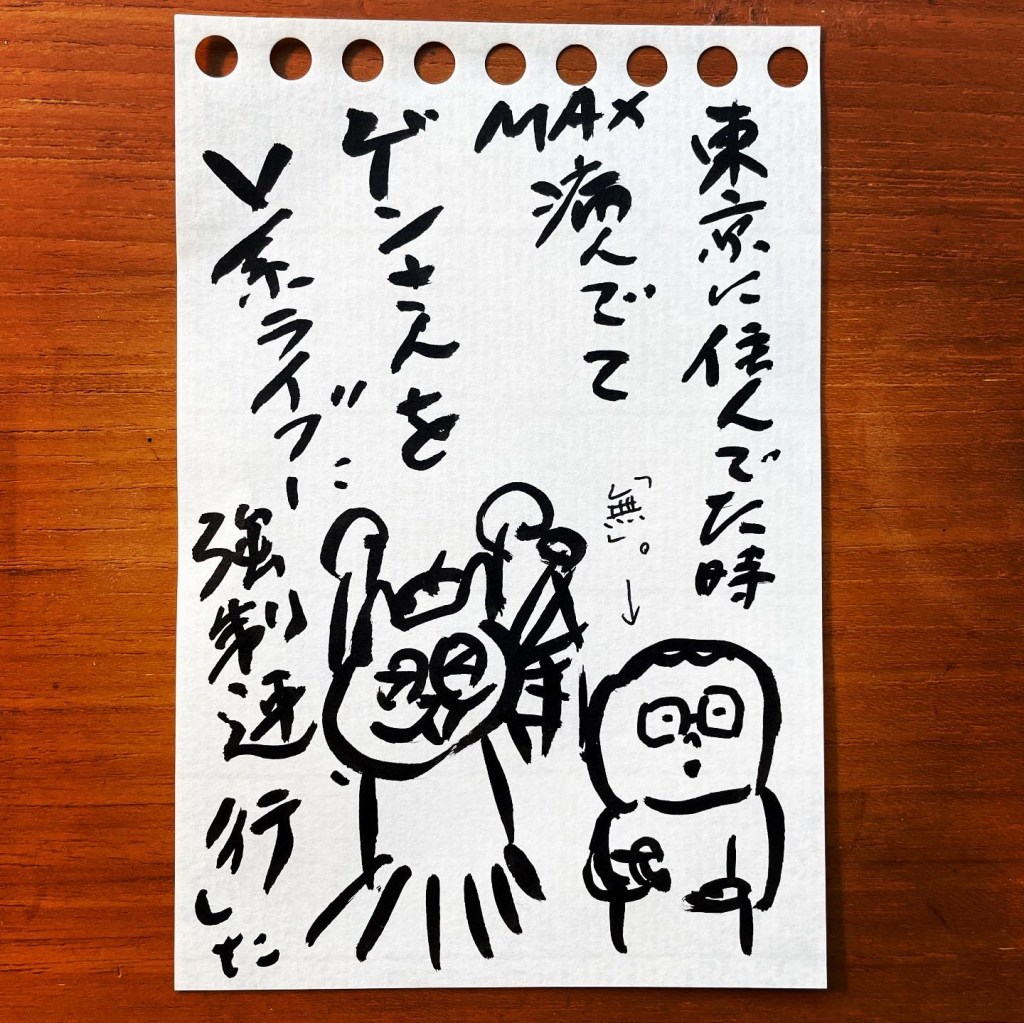 東京に住んでた時
MAX病んでて
ゲンさんを
V系ライブに
強制連行した
「無」。